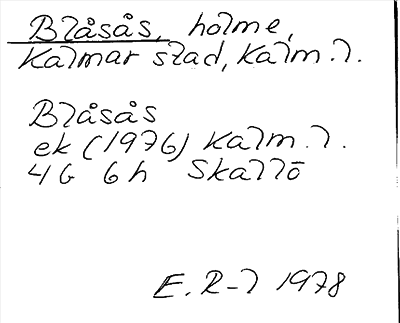 Blåsås, holme,
Kalmar stad, Kalm. l.
Blåsås
ek (1976) Kalm. l.
4G 6h Skallö
E. R-l 1978